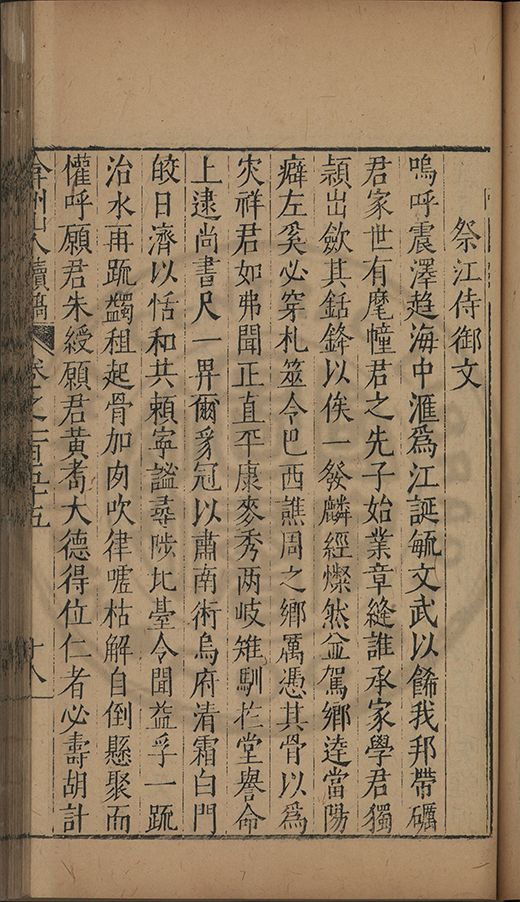 祭江侍御文
嗚呼震澤趍海中滙爲江誕毓文武以餙我邦帶礪
君家世有麾幢君之先子始業章縫誰承家學君獨
穎出歛其銛鋒以俟一發麟經燦然並駕鄉逹當陽
癖左奚必穿札筮令巴西譙周之鄉厲憑其骨以爲
灾祥君如弗聞正直平康麥秀两岐雉馴於堂譽命
上逮尚書尺一畀爾豸冠以肅南術烏府清霜白門
皎日濟以恬和共頼寜謐尋陟比臺令聞益孚一䟽
治水再䟽蠲租起骨加肉吹律嘘枯解自倒懸聚而
懽呼願君朱綬願君黃耈大德得位仁者必壽胡計
弇州山人續稿 卷之一百五十五 十八